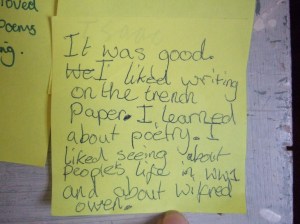 oved
Poems
ng.
It was good.
I liked writing
on the trench
Paper. I learned
about poetry. I
liked seeing about
peoples life in WW1
and about Wilfred
Owen.